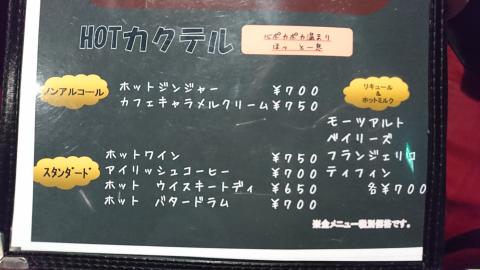 HOTカクテル
心ポカポカ温まり
ほっ と一息
ノンアルコール
ホットジンジャー ¥700
カフェキャラメルクリーム ¥750
リキュール
&
ホットミルク
モーツアルト
ベイリーズ
フランジェリコ
ティフィン
各¥700
スタンダード
ホットワイン ¥750
アイリッシュコーヒー ¥700
ホット ウイスキートディ ¥650
ホット バタードラム ¥700
※全メニュー税別価格です。